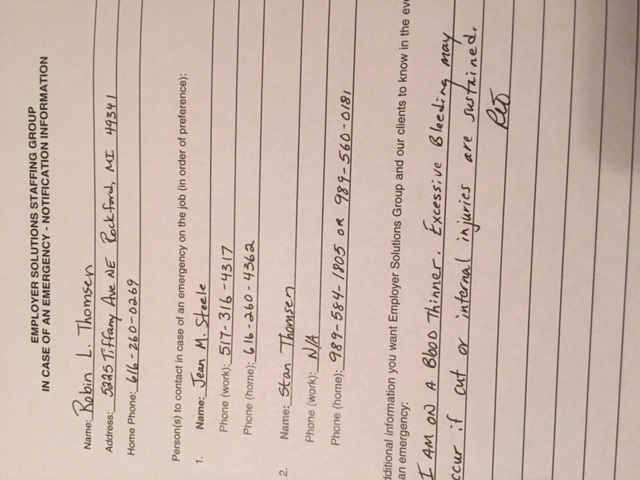 EMPLOYER SOLUTIONS STAFFING GROUP
IN CASE OF AN EMERGENCY - NOTIFICATION INFORMATION
Name: Robin L. Thomsen
Address: 5225 Tiffany Ave NE Rockford, MI 49341
Home Phone: 616-260-0269
Person(s) to contact in case of an emergency on the job (in order of preference):
1. Name: Jean M. Steele
Phone (work): 517-316-4317
Phone (home): 616-260-4362
2. Name: Stan Thomsen
Phone (work): N/A
Phone (home): 989-584-1805 OR 989-560-0181
dditional information you want Employer Solutions Group and our clients to know in the eve
an emergency:
I AM ON A Blood Thinner. Excessive Bleeding may
ccur if cut or internal injuries are sustained.